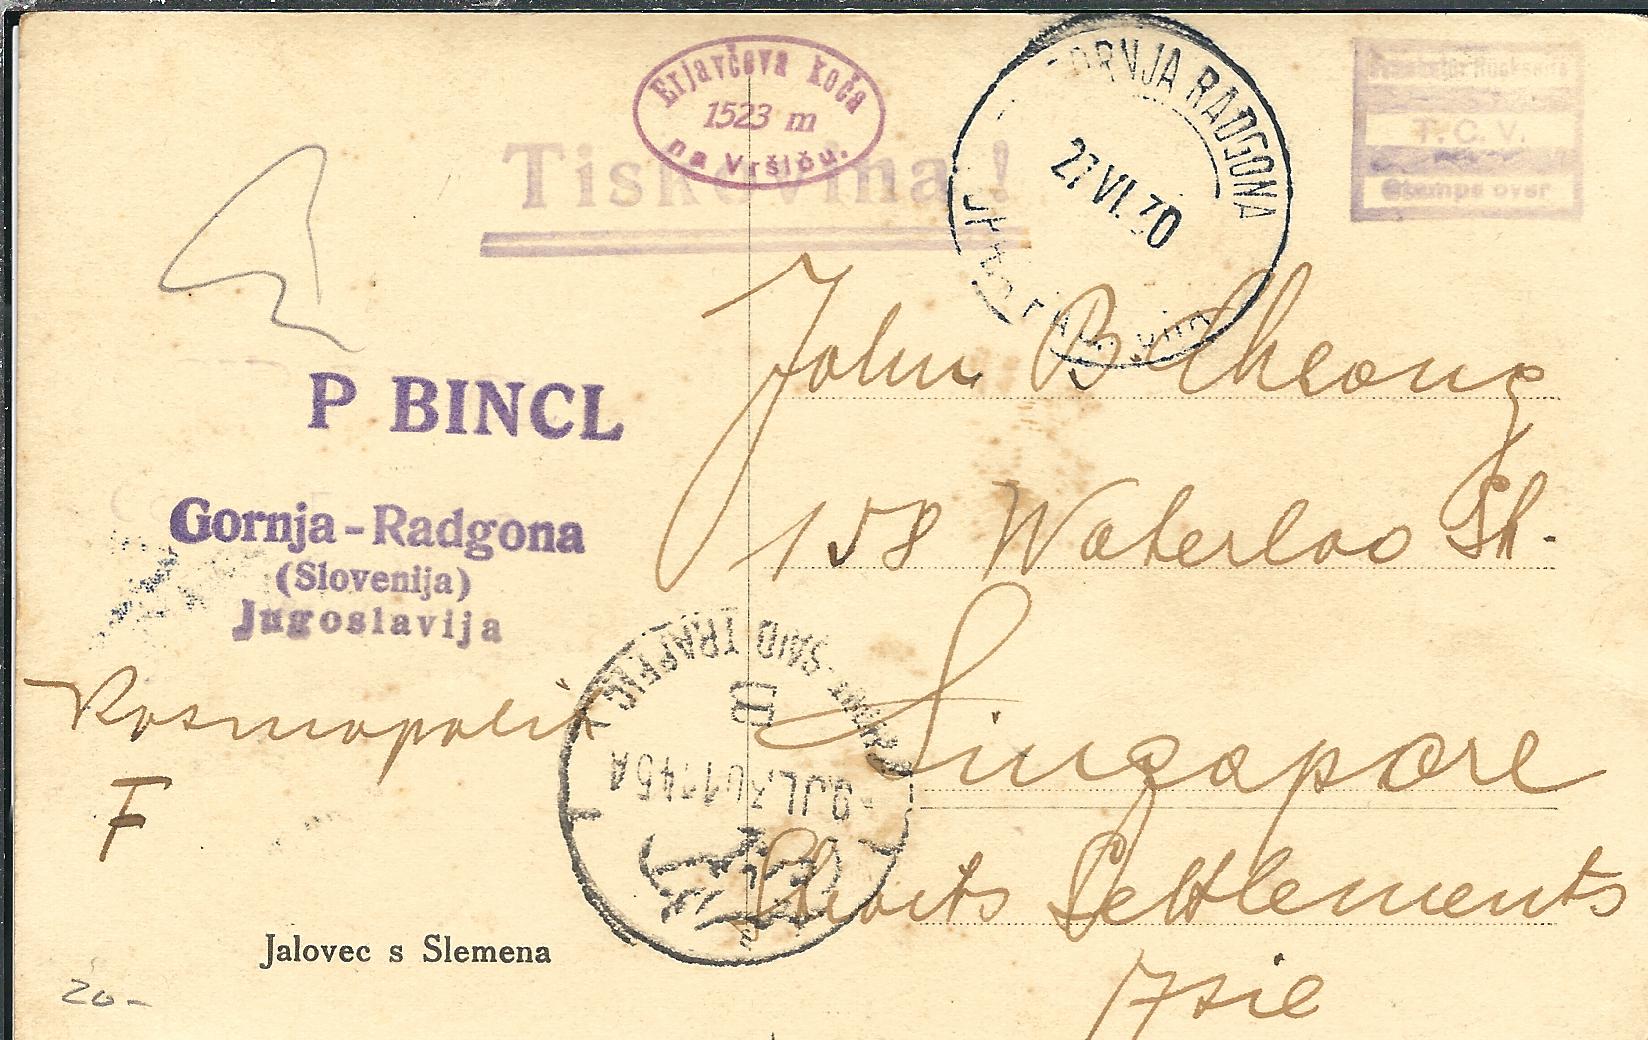 Erjavčeva koča
1523 m
na Vršiču.
Tiskovina!
GORNJA RADGONA
27 VI. 30
T. C. V.
Stamps over
P BINCL
Gornja-Radgona
(Slovenija)
Jugoslavija
Kosmopolit
F
John B Cheong
158 Waterloo St.
Singapore
Straits Settlements
Asie
PORT-SAID TRAFFIC
9 JL. 30 11 45 A
Jalovec s Slemena
20-